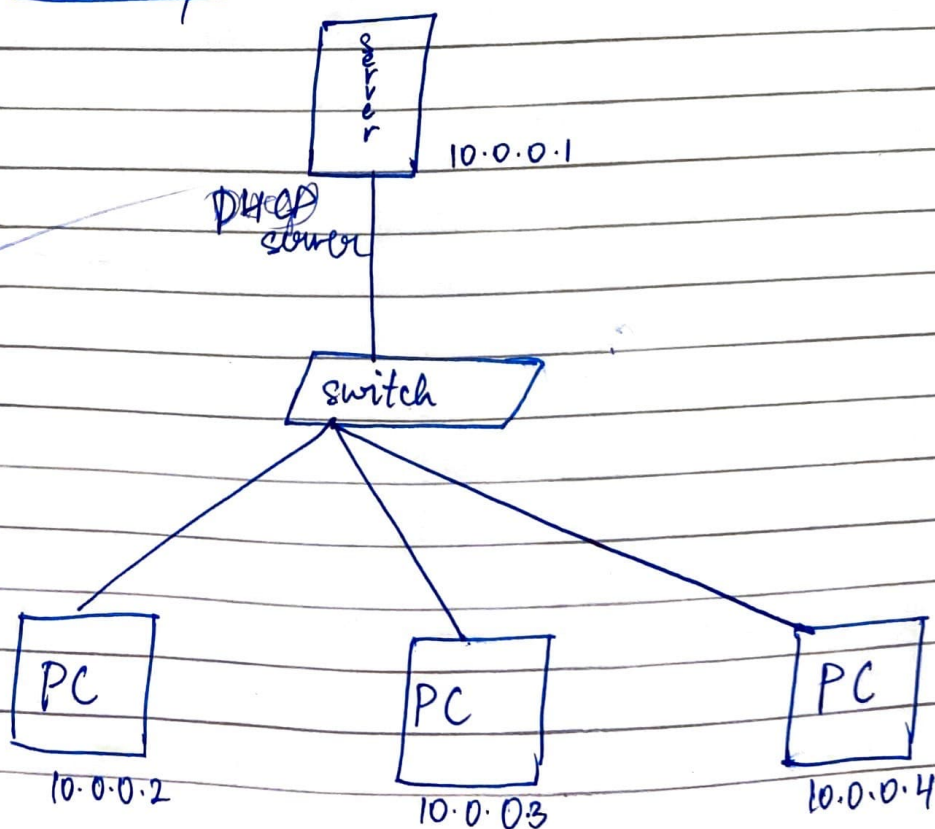 server
10.0.0.1
DHCP
server
switch
PC
PC
PC
10.0.0.2
10.0.0.3
10.0.0.4